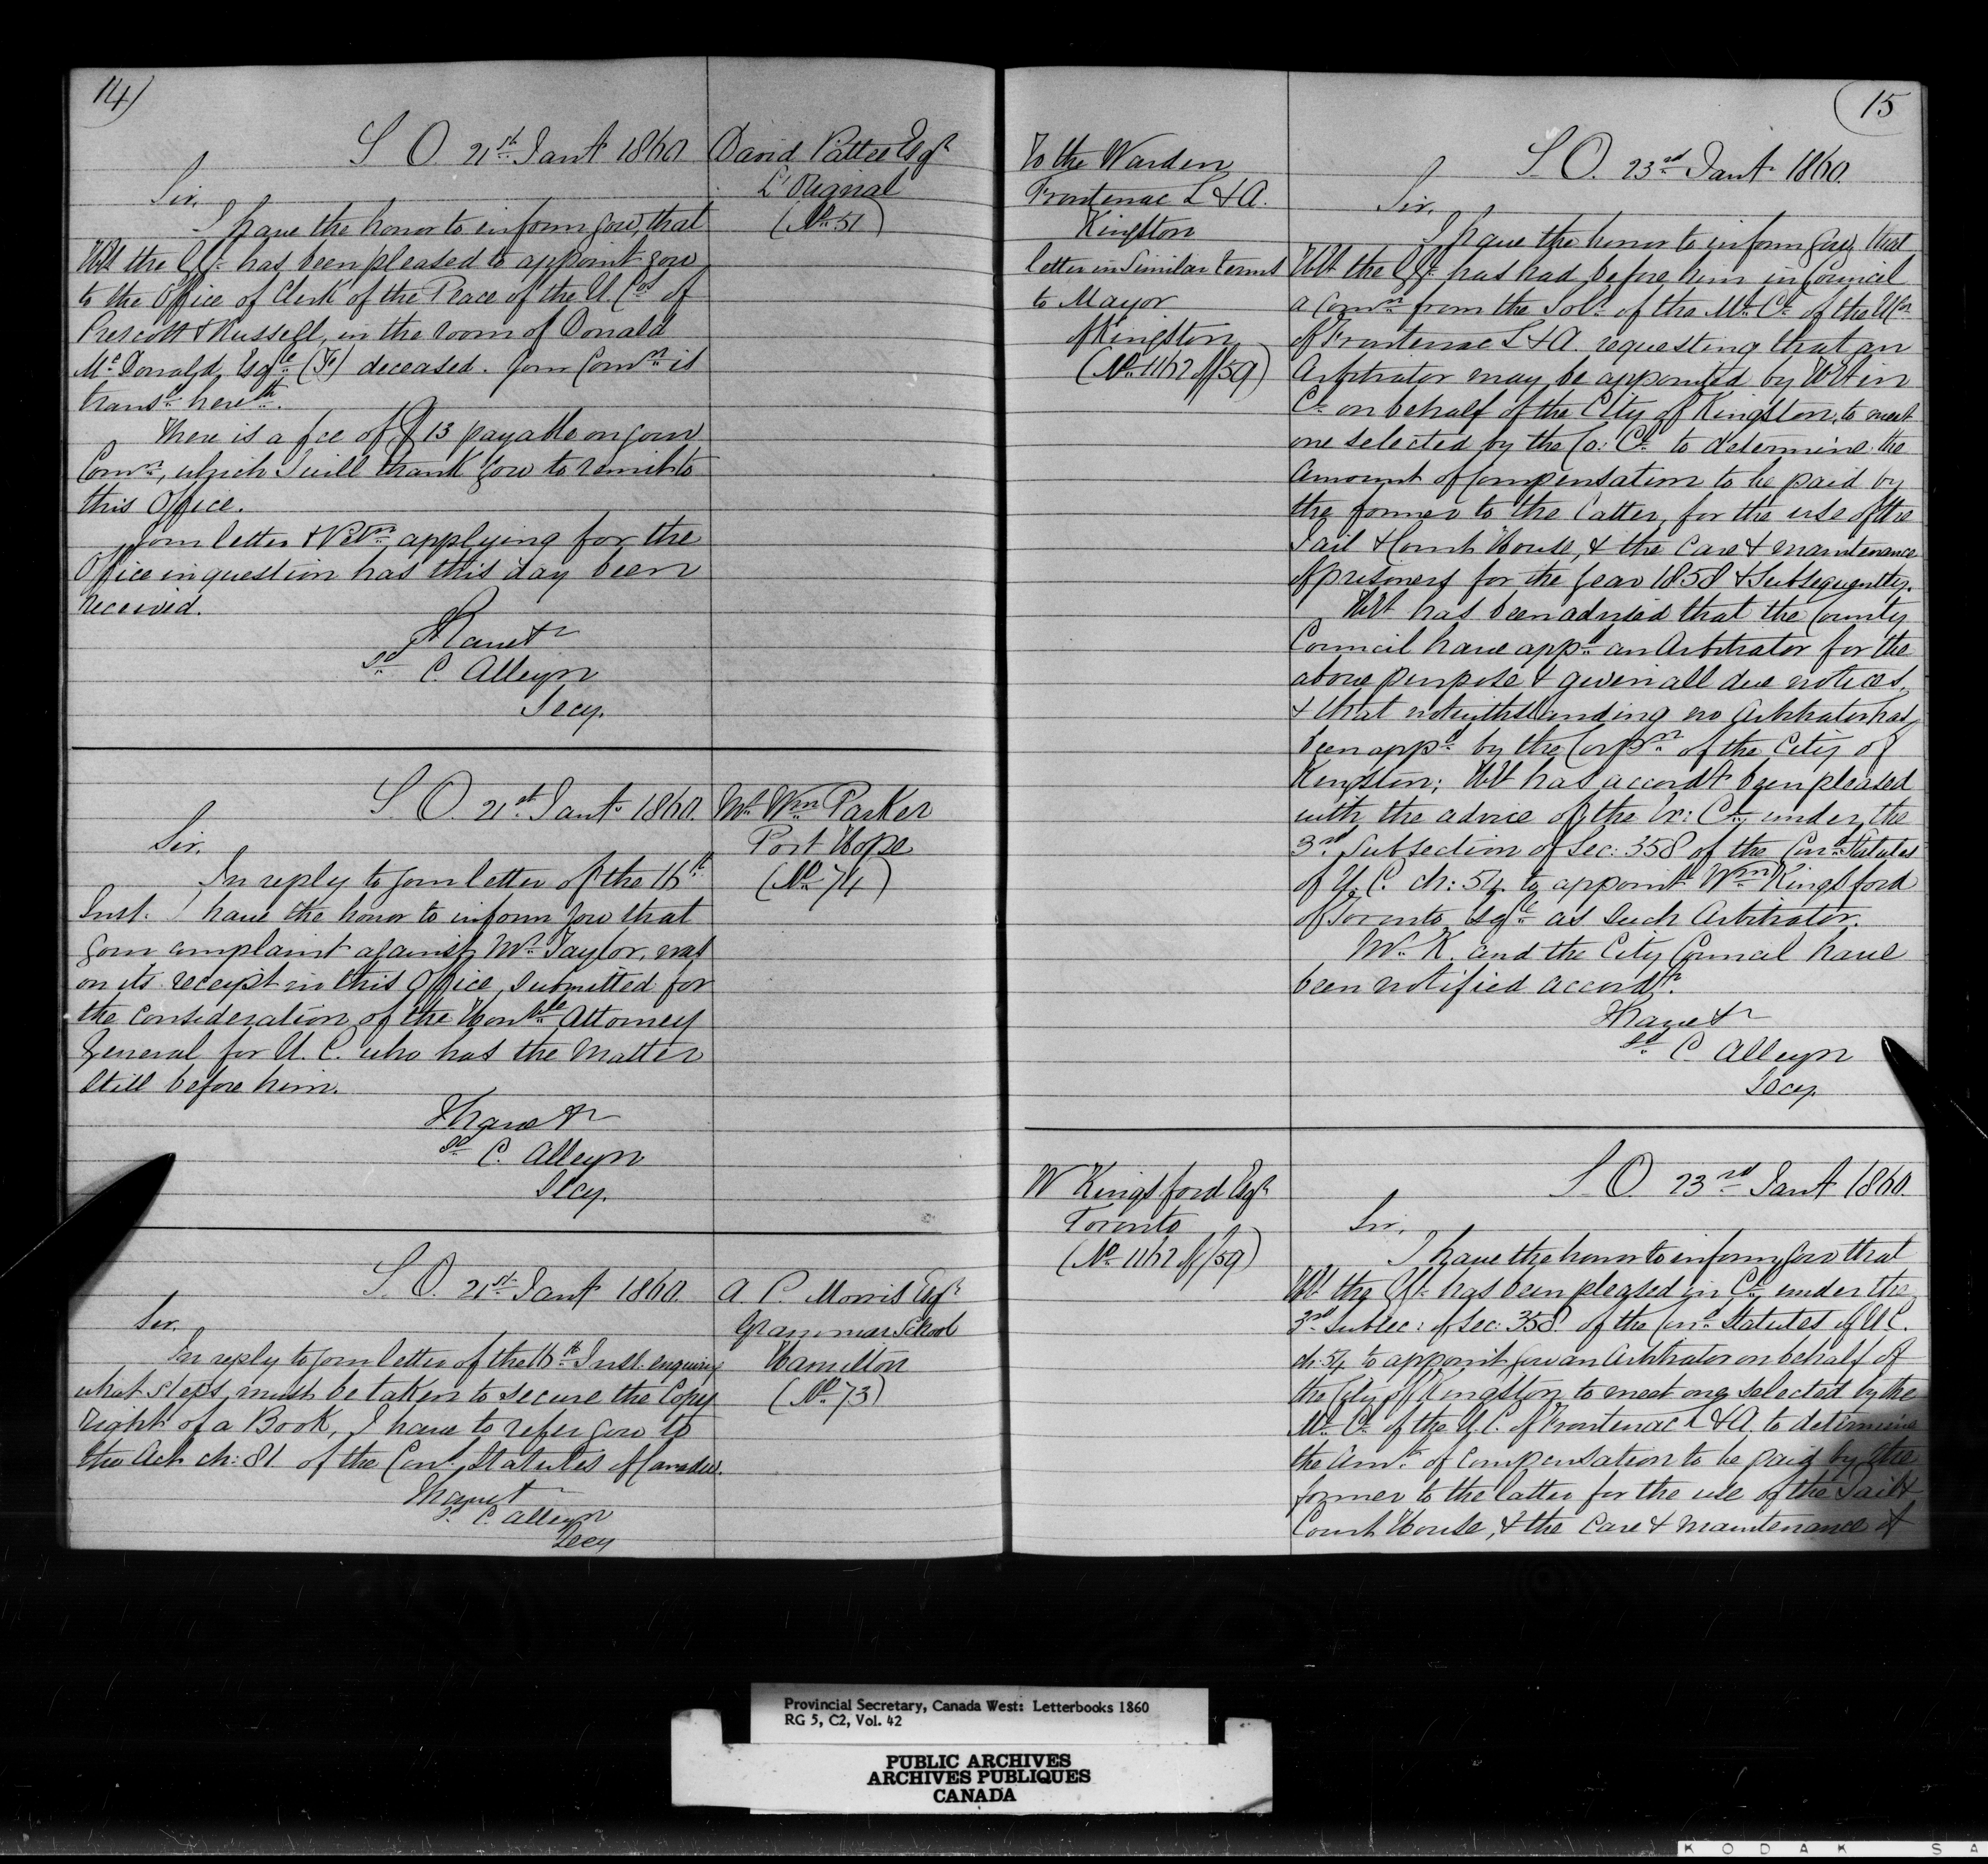 14)
S. O. 21st Jany 1860
David Pattee Esqr
L'Orignal
(No 51)
Sir,
I have the honor to inform you, that
HE the GG. has been pleased to appoint you
to the Office of Clerk of the Peace of the U. Cos of
Prescott & Russell, in the room of Donald
Mc Donald, Esqre deceased. Your Comn is
transd herewth.
There is a fee of $13 payable on your
Comn, which I will thank you to remit to
this Office.
Your letter applying for the
Office in question has this day been
received.
I have &c
sd C. Alleyn
Secy.
S. O. 21st Jany 1860.
Mr Wm Parker
Port Hope
(No 74)
Sir,
In reply to your letter of the 16th
Inst. I have the honor to inform you that
your complaint against Mr Taylor, was
on its receipt in this Office, submitted for
the consideration of the Honble Attorney
General for U. C. who has the matter
still before him.
I have &c
sd C. Alleyn
Secy.
S. O. 21st Jany 1860.
A. P. Morris Esqr
Grammar School
Hamilton
(No 73)
Sir,
In reply to your letter of the 16th Inst. enquiring
what steps must be taken to secure the Copy
right of a Book, I have to refer you to
the Act ch: 81 of the Cond Statutes of Canada.
I have &c
sd C. Alleyn
Secy
15
To the Warden
Frontenac L & A.
Kingston
letter in Similar terms
to Mayor
of Kingston
(No 1162 of/59)
S. O. 23rd Jany 1860.
Sir,
I have the honor to inform you that
HE the GG. has had before him in Council
a Comn from the Solr of the Ml Cl of the U Cos
of Frontenac L & A. requesting that an
Arbitrator may be appointed by HE in
Cl on behalf of the City of Kingston, to meet
one selected by the Co: Cl to determine the
Amount of Compensation to be paid by
the former to the latter, for the use of the
Jail & Court House, & the Care & maintenance
of prisoners for the year 1858 & Subsequently.
HE has been advised that the County
Council have appd an Arbitrator for the
above purpose & given all due notices,
& that notwithstanding no Arbitrator has
been appd by the Corpn of the City of
Kingston; HE has accordy been pleased
with the advice of the Ex: Cl under the
3rd Subsection of Sec: 358 of the Cond Statutes
of U. C. ch: 54. to appoint Wm Kingsford
of Toronto Esqre as such Arbitrator.
Mr K. and the City Council have
been notified accordy.
I have &c
sd C Alleyn
Secy.
W Kingsford Esqr
Toronto
(No 1162 of/59)
S. O. 23rd Jany 1860.
Sir,
I have the honor to inform you that
HE the GG. has been pleased in Cl under the
3rd subsec: of Sec: 358. of the Cond Statutes of U C.
ch: 54 to appoint you an Arbitrator on behalf of
the City of Kingston to meet one selected by the
Ml Cl of the U. C. of Frontenac L & A. to determine
the Amt of Compensation to be paid by the
former to the latter for the use of the Jail &
Court House, & the Care & maintenance of
Provincial Secretary, Canada West: Letterbooks 1860
RG 5, C2, Vol. 42
PUBLIC ARCHIVES
ARCHIVES PUBLIQUES
CANADA
KODAK SA